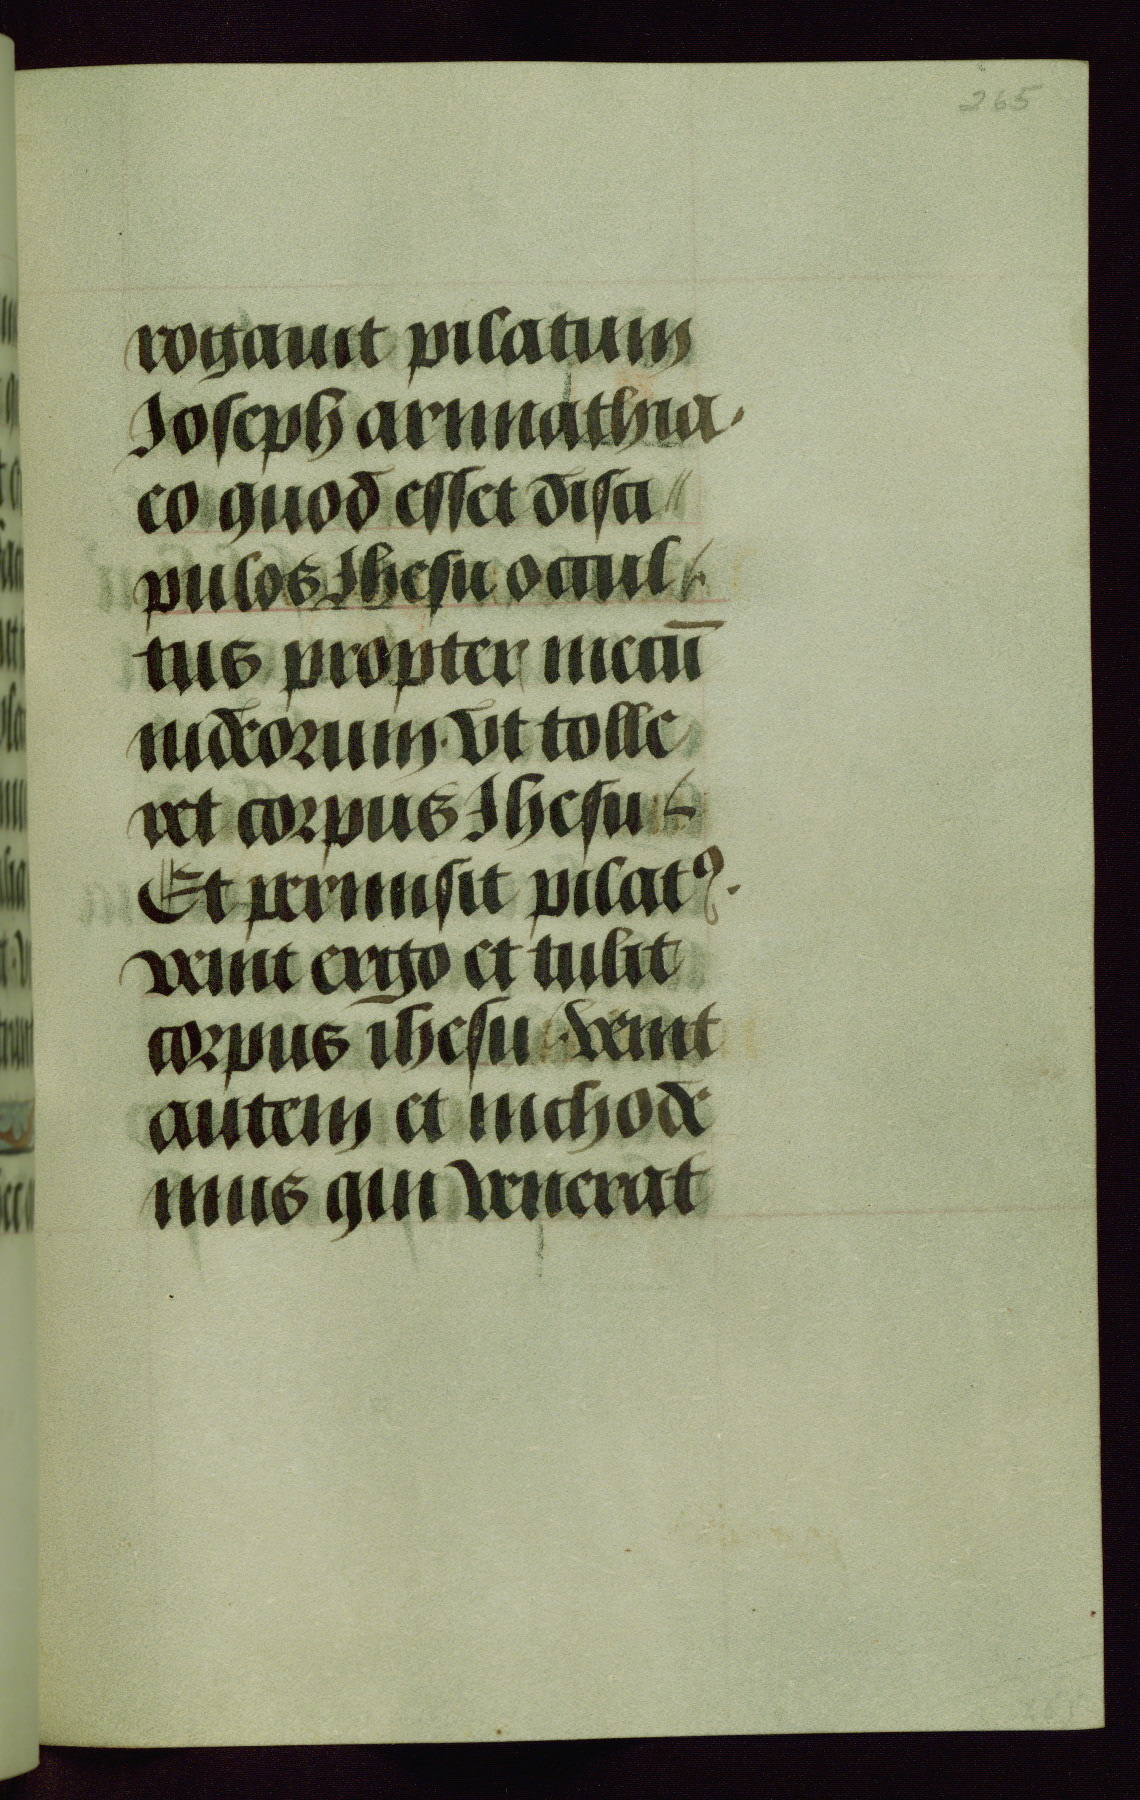 265
rogauit pilatum
Joseph arimathia.
eo quod esset disci //
pulos Jhesu occul
tus propter metū
iudeorum. vt tolle
ret corpus Jhesu
Et permisit pilatꝰ.
venit ergo et tulit
corpus ih̄esu. venit
autem et nichode
mus qui venerat